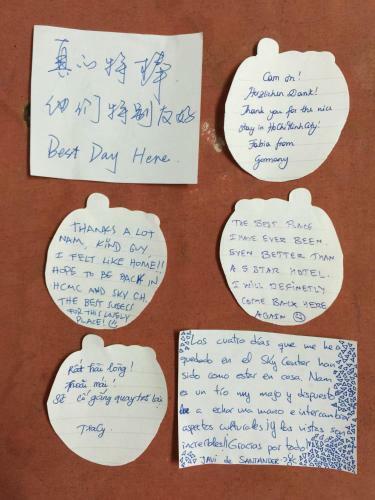 真心特棒
他们特别友好
Best Day Here.
Cảm ơn!
Herzlichen Dank!
Thank you for the nice
stay in Ho Chi Minh City.
Fabia from
Germany
THANKS A LOT
NAM, KIND GUY,
I FELT LIKE HOME!!
HOPE TO BE BACK IN
HCMC AND SKY CH.
THE BEST
FOR THIS LOVELY
PLACE!
THE BEST PLACE
I HAVE EVER BEEN.
EVEN BETTER THAN
A 5 STAR HOTEL.
I WILL DEFINETLY
COME BACK HERE
AGAIN
Rất hài lòng!
Thoải mái!
Sẽ cố gắng quay trở lại
Los cuatro días que me he
quedado en el Sky Center han
sido como estar en casa. Nam
es un tío muy majo y dispuesto
a echar una mano e intercambiar
aspectos culturales ¡y las vistas son
increíbles! ¡Gracias por todo!
JAVI de SANTANDER